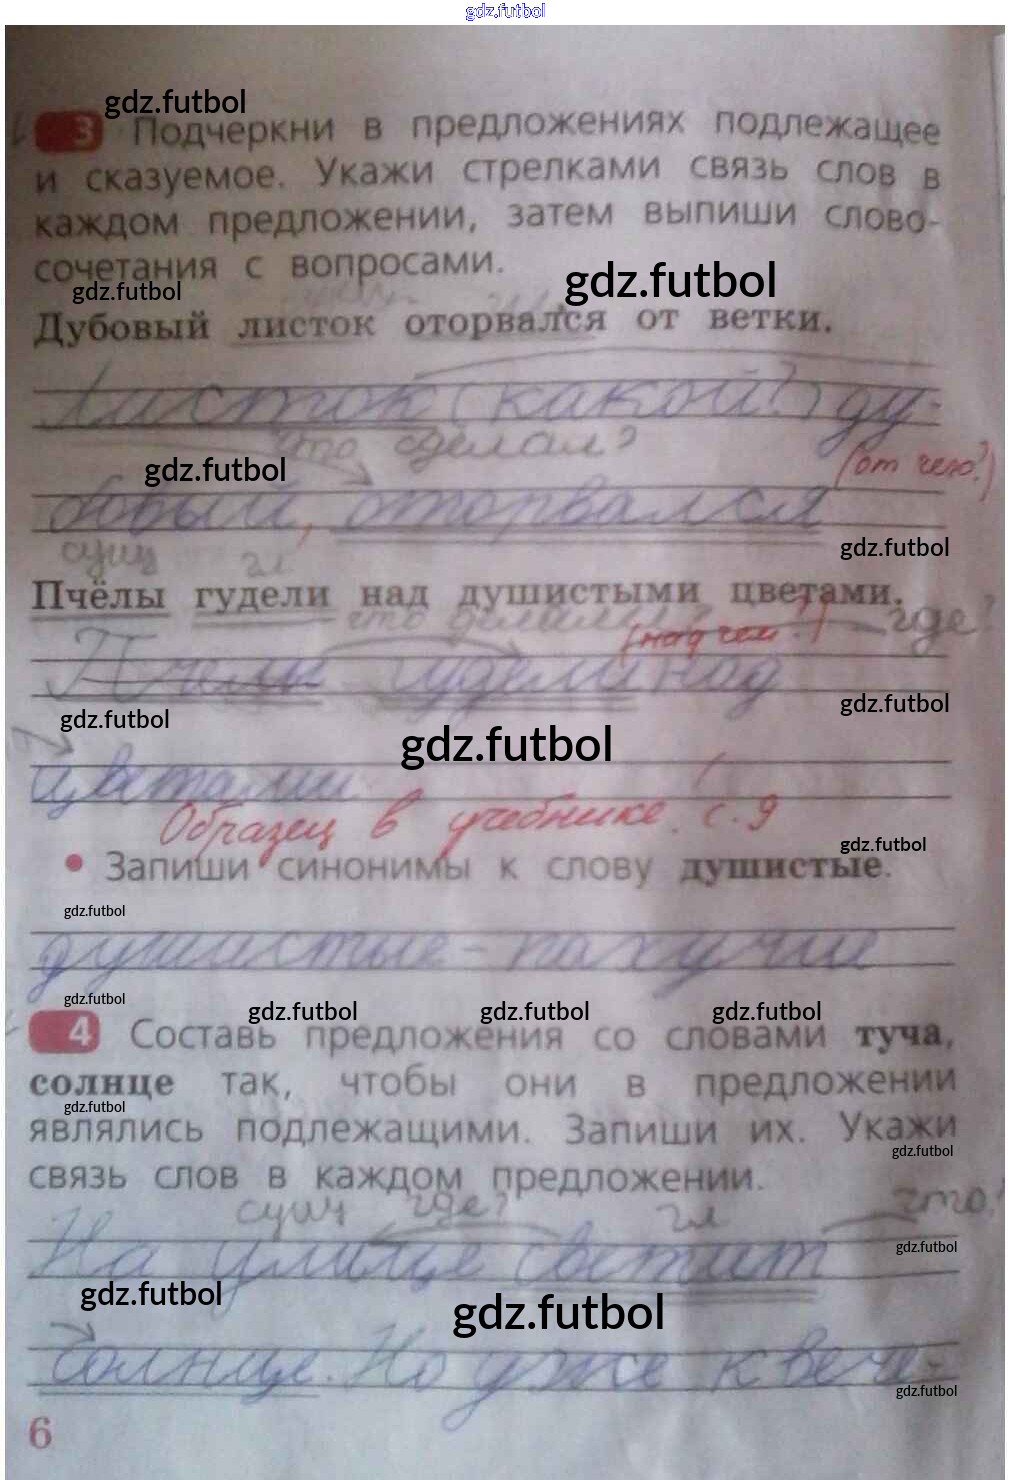 gdz.futbol
gdz.futbol
3 Подчеркни в предложениях подлежащее
и сказуемое. Укажи стрелками связь слов в
каждом предложении, затем выпиши слово-
сочетания с вопросами.
gdz.futbol
gdz.futbol
Дубовый листок оторвался от ветки.
Листок (какой?) ду-
что сделал?
gdz.futbol
(от чего?)
бовый, оторвался
gdz.futbol
сущ гл.
Пчёлы гудели над душистыми цветами.
что делали? где?
(над чем?)
Пчелы гудели над
gdz.futbol
gdz.futbol
gdz.futbol
цветами
Образец в учебнике с. 9
gdz.futbol
• Запиши синонимы к слову душистые.
gdz.futbol
душистые - пахучие
gdz.futbol
gdz.futbol gdz.futbol gdz.futbol
4 Составь предложения со словами туча,
солнце так, чтобы они в предложении
gdz.futbol
являлись подлежащими. Запиши их. Укажи
gdz.futbol
связь слов в каждом предложении.
сущ где? гл что?
На улице светит
gdz.futbol
gdz.futbol
gdz.futbol
солнце. Но уже к вече-
gdz.futbol
6